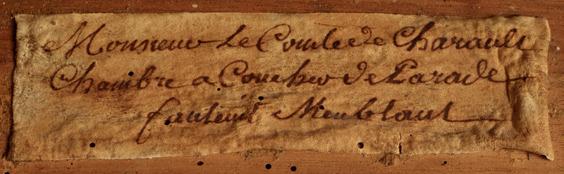 Monsieur Le Comte de Charault
Chambre a Coucher de Parade
fauteuil Meublant